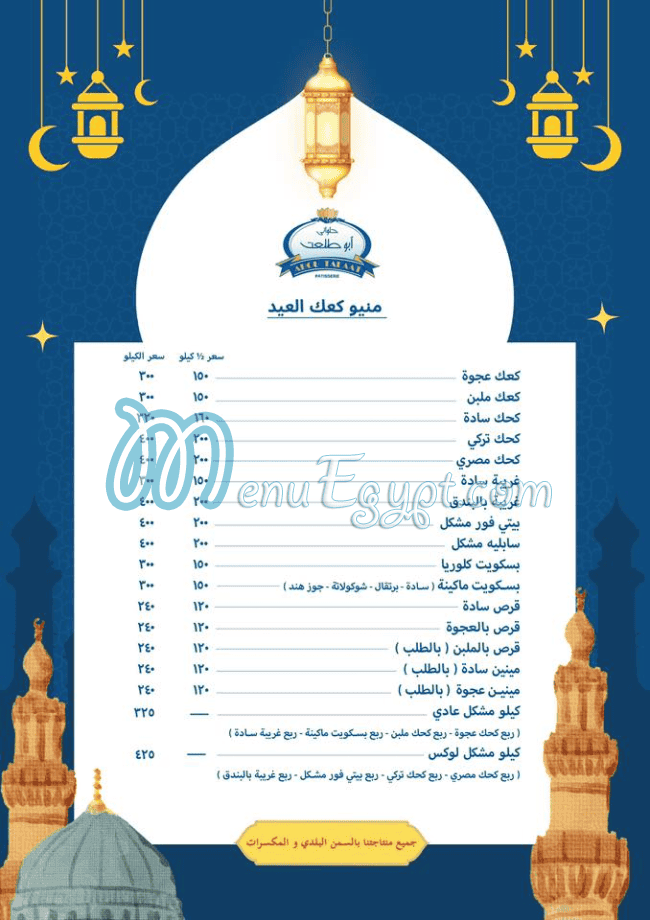 حلواني
أبو طلعت
ABOU TALAAT
PATISSERIE
منيو كعك العيد
سعر ½ كيلو سعر الكيلو
كعك عجوة ١٥٠ ٣٠٠
كعك ملبن ١٥٠ ٣٠٠
كحك سادة ١٦٠ ٣٢٠
كحك تركي ٢٠٠ ٤٠٠
كحك مصري ٢٠٠ ٤٠٠
غريبة سادة ١٥٠ ٣٠٠
غريبة بالبندق ٢٠٠ ٤٠٠
MenuEgypt.com
بيتي فور مشكل ٢٠٠ ٤٠٠
سابليه مشكل ٢٠٠ ٤٠٠
بسكويت كلوريا ١٥٠ ٣٠٠
بسكويت ماكينة ( سادة - برتقال - شوكولاتة - جوز هند ) ١٥٠ ٣٠٠
قرص سادة ١٢٠ ٢٤٠
قرص بالعجوة ١٢٠ ٢٤٠
قرص بالملبن ( بالطلب ) ١٢٠ ٢٤٠
مينين سادة ( بالطلب ) ١٢٠ ٢٤٠
مينين عجوة ( بالطلب ) ١٢٠ ٢٤٠
كيلو مشكل عادي — ٣٢٥
( ربع كحك عجوة - ربع كحك ملبن - ربع بسكويت ماكينة - ربع غريبة سادة )
كيلو مشكل لوكس — ٤٢٥
( ربع كحك مصري - ربع كحك تركي - ربع بيتي فور مشكل - ربع غريبة بالبندق )
جميع منتاجتنا بالسمن البلدي و المكسرات